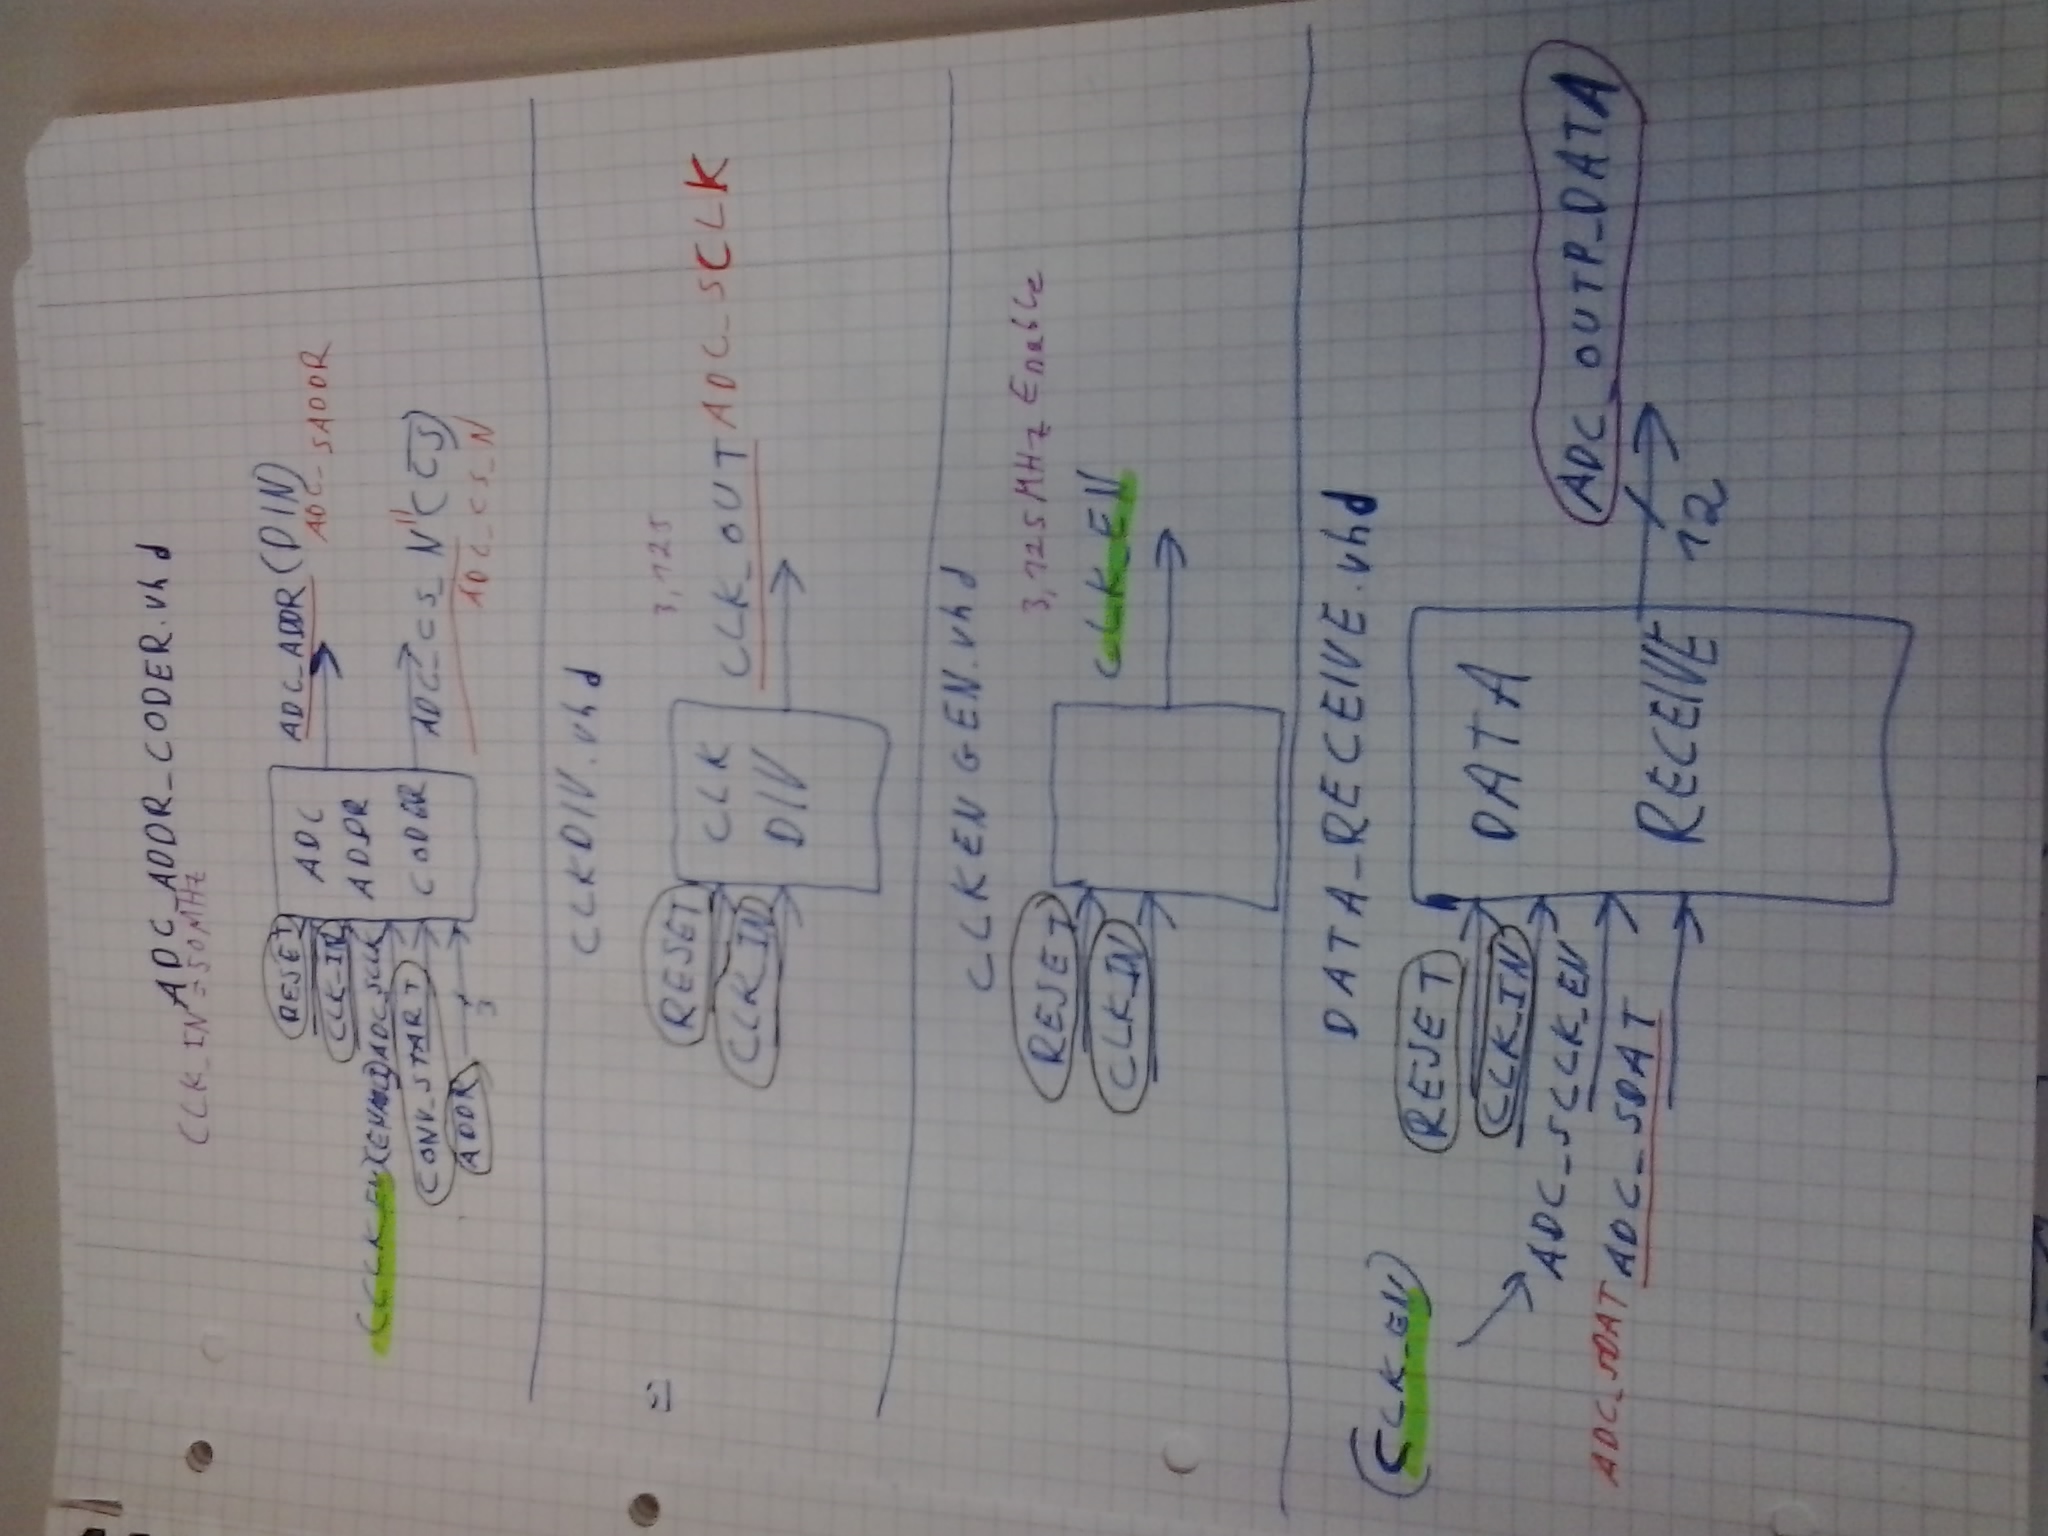 ADC_ADDR_CODER.vhd
CLK_IN = 50MHz
RESET
CLK_IN
(CLK_EN) ADC_SCLK
CONV_START
ADDR
3
ADC
ADDR
CODER
ADC_ADDR (DIN)
ADC_SADDR
ADC_CS_N" (CS)
ADC_CS_N
CLKDIV.vhd
RESET
CLK_IN
CLK
DIV
3,125
CLK_OUT ADC_SCLK
CLKENGEN.vhd
RESET
CLK_IN
3,125MHz Enable
CLK_EN
DATA_RECEIVE.vhd
RESET
CLK_IN
(CLK_EN)
ADC_SCLK_EN
ADC_SDAT ADC_SDAT
DATA
RECEIVE
ADC_OUTP_DATA
12